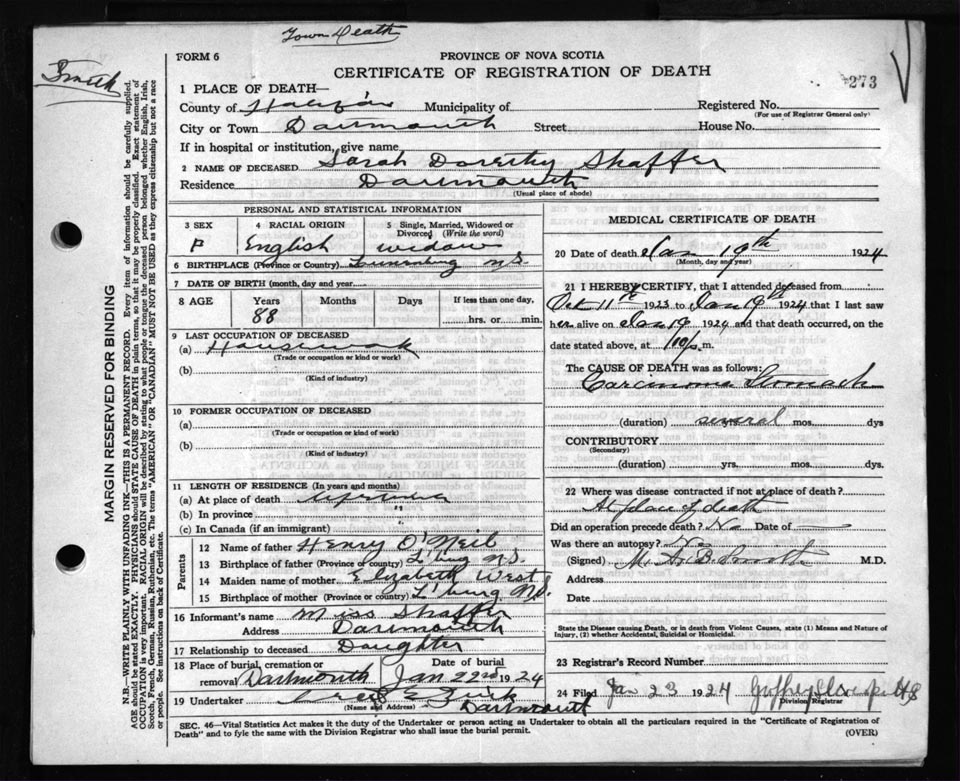 Town Death
FORM 6
PROVINCE OF NOVA SCOTIA
CERTIFICATE OF REGISTRATION OF DEATH
273
Smith
1 PLACE OF DEATH—
County of Halifax Municipality of Registered No.
(For use of Registrar General only)
City or Town Dartmouth Street House No.
If in hospital or institution, give name
2 NAME OF DECEASED Sarah Dorothy Shaffer
Residence Dartmouth
(Usual place of abode)
PERSONAL AND STATISTICAL INFORMATION
3 SEX 4 RACIAL ORIGIN 5 Single, Married, Widowed or Divorced (Write the word)
F English widow
6 BIRTHPLACE (Province or Country) Lunenburg N.S.
7 DATE OF BIRTH (month, day and year)
8 AGE Years Months Days If less than one day,
88 hrs. or min.
9 LAST OCCUPATION OF DECEASED
(a) Housework
(Trade or occupation or kind of work)
(b)
(Kind of industry)
10 FORMER OCCUPATION OF DECEASED
(a)
(Trade or occupation or kind of work)
(b)
(Kind of industry)
11 LENGTH OF RESIDENCE (In years and months)
(a) At place of death
(b) In province "
(c) In Canada (if an immigrant)
Parents
12 Name of father Henry O'Neil
13 Birthplace of father (Province or country) L'burg N.S.
14 Maiden name of mother Elizabeth West
15 Birthplace of mother (Province or country) L'burg N.S.
16 Informant's name Miss Shaffer
Address Dartmouth
17 Relationship to deceased Daughter
18 Place of burial, cremation or Date of burial
removal Dartmouth Jan 22nd 1924
19 Undertaker Zink
(Name and Address) Dartmouth
MEDICAL CERTIFICATE OF DEATH
20 Date of death Jan 19th 1924
(Month, day and year)
21 I HEREBY CERTIFY, that I attended deceased from
Oct 11th 1923 to Jan 19th 1924 that I last saw
her alive on Jan 19 1924 and that death occurred, on
date stated above, at m.
The CAUSE OF DEATH was as follows:
Carcinoma Stomach
(duration) several mos. dys
CONTRIBUTORY
(Secondary)
(duration) yrs. mos. dys.
22 Where was disease contracted if not at place of death?
At place of death
Did an operation precede death? No Date of —
Was there an autopsy? No
(Signed) M. A. B. Smith M.D.
Address
Date
State the Disease causing Death, or in death from Violent Causes, state (1) Means and Nature of
Injury, (2) whether Accidental, Suicidal or Homicidal.
23 Registrar's Record Number
24 Filed Jan 23 1924
Division Registrar
SEC. 46—Vital Statistics Act makes it the duty of the Undertaker or person acting as Undertaker to obtain all the particulars required in the "Certificate of Registration of
Death" and to fyle the same with the Division Registrar who shall issue the burial permit.
(OVER)
MARGIN RESERVED FOR BINDING
N.B.—WRITE PLAINLY WITH UNFADING INK—THIS IS A PERMANENT RECORD. Every item of information should be carefully supplied.
AGE should be stated EXACTLY. PHYSICIANS should STATE CAUSE OF DEATH in plain terms, so that it may be properly classified. Exact statement of
OCCUPATION is very important. RACIAL ORIGIN will be described by stating to what people or tongue the deceased person belonged whether English, Irish,
Scotch, French, German, Russian, Ruthenian, etc. The terms "AMERICAN" or "CANADIAN" MUST NOT BE USED as they express citizenship but not a race
or people. See instructions on back of Certificate.